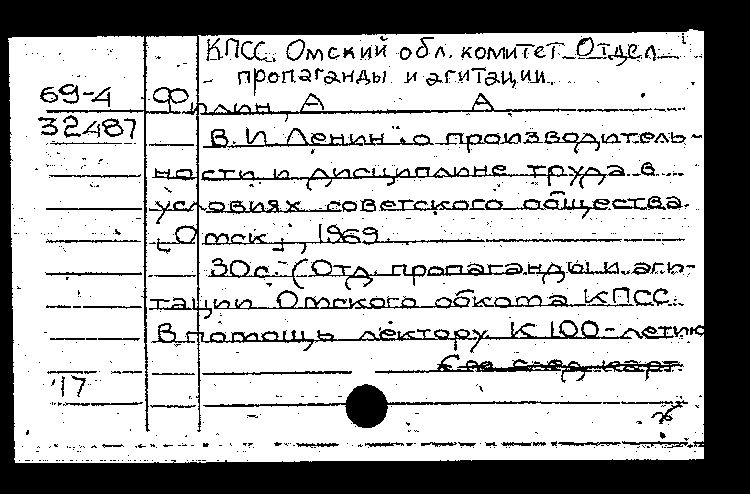 КПСС. Омский обл. комитет. Отдел
пропаганды и агитации.
69-4 Филин, А А
32487 В. И. Ленин о производитель-
ности и дисциплине труда в
условиях советского общества.
[Омск], 1969.
30 с. (Отд. пропаганды и аги-
тации Омского обкома КПСС.
В помощь лектору. К 100-летию
См. след. карт.
17